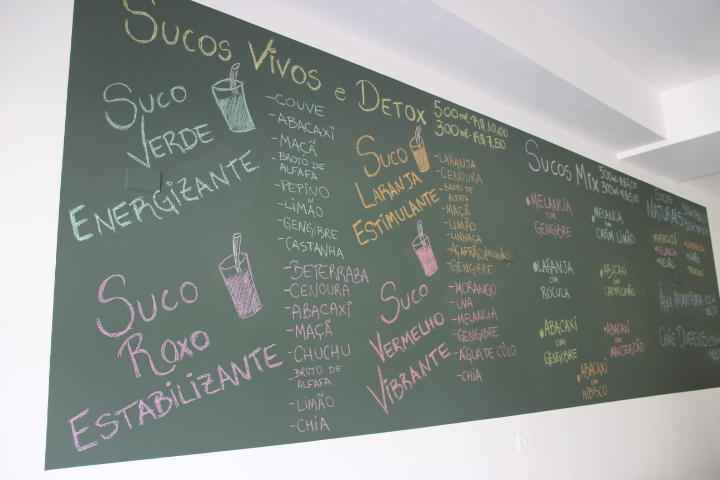 Sucos Vivos e Detox
500ml-R$10,00
300ml-R$7,50
Suco
Verde
Energizante
-Couve
-Abacaxi
-Maçã
-Broto de
Alfafa
-Pepino
-Limão
-Gengibre
-Castanha
Suco
Roxo
Estabilizante
-Beterraba
-Cenoura
-Abacaxi
-Maçã
-Chuchu
-Broto de
Alfafa
-Limão
-Chia
Suco
Laranja
Estimulante
-Laranja
-Cenoura
-Broto de
Alfafa
-Maçã
-Limão
-Linhaça
-Gengibre
Suco
Vermelho
Vibrante
-Morango
-Uva
-Melancia
-Gengibre
-Água de Côco
-Chia
Sucos Mix
Melancia
com
Gengibre
Melancia
com
Capim Limão
Laranja
com
Rúcula
Abacaxi
com
Capim Limão
Abacaxi
com
Gengibre
Abacaxi
com
Manjericão
Abacaxi
com
Hibisco
Sucos
Naturais
Abacaxi
Melancia
Melão
Água Aromatizada
Chás Diversos